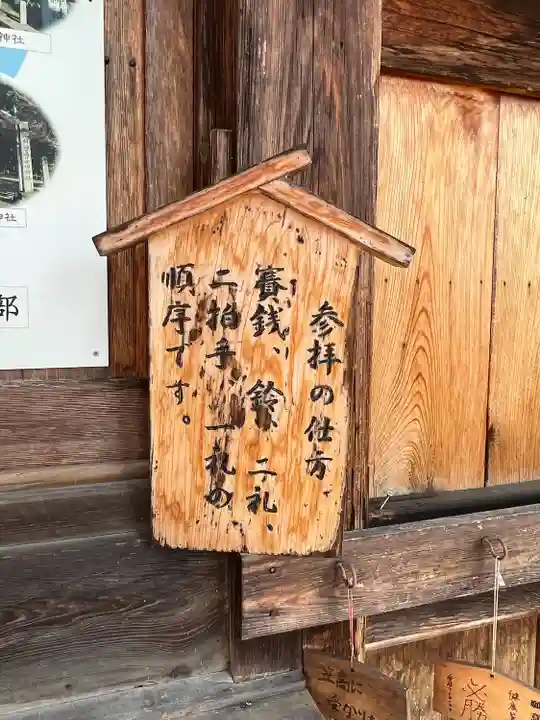 参拝の仕方
賽銭、鈴、二礼、
二拍手、一礼の
順序です。
神社
神社
部
必勝